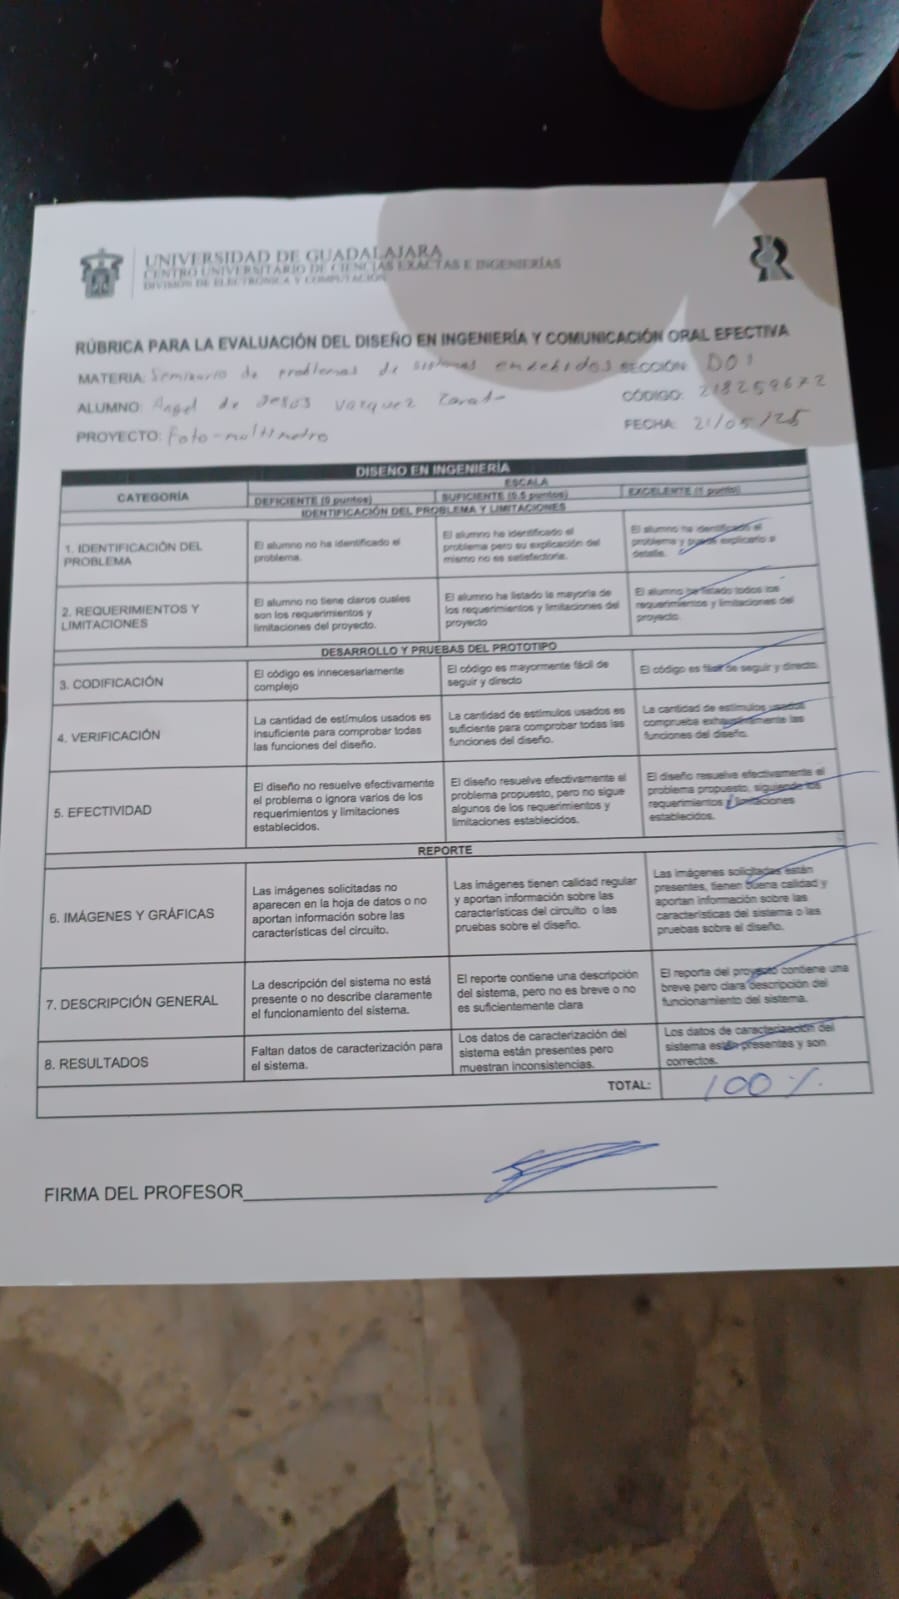 UNIVERSIDAD DE GUADALAJARA
CENTRO UNIVERSITARIO DE CIENCIAS EXACTAS E INGENIERÍAS
DIVISIÓN DE ELECTRÓNICA Y COMPUTACIÓN
RÚBRICA PARA LA EVALUACIÓN DEL DISEÑO EN INGENIERÍA Y COMUNICACIÓN ORAL EFECTIVA
MATERIA: Seminario de problemas de sistemas embebidos SECCIÓN: D01
ALUMNO: Angel de Jesus Vazquez Zarate CÓDIGO: 218259672
PROYECTO: Foto-multimetro FECHA: 21/05/25
DISEÑO EN INGENIERÍA
CATEGORÍA
ESCALA
DEFICIENTE (0 puntos) SUFICIENTE (0.5 puntos) EXCELENTE (1 punto)
IDENTIFICACIÓN DEL PROBLEMA Y LIMITACIONES
1. IDENTIFICACIÓN DEL
PROBLEMA
El alumno no ha identificado el
problema.
El alumno ha identificado el
problema pero su explicación del
mismo no es satisfactoria.
El alumno ha identificado el
problema y puede explicarlo a
detalle.
2. REQUERIMIENTOS Y
LIMITACIONES
El alumno no tiene claros cuales
son los requerimientos y
limitaciones del proyecto.
El alumno ha listado la mayoría de
los requerimientos y limitaciones del
proyecto
El alumno ha listado todos los
requerimientos y limitaciones del
proyecto.
DESARROLLO Y PRUEBAS DEL PROTOTIPO
3. CODIFICACIÓN
El código es innecesariamente
complejo
El código es mayormente fácil de
seguir y directo
El código es fácil de seguir y directo.
4. VERIFICACIÓN
La cantidad de estímulos usados es
insuficiente para comprobar todas
las funciones del diseño.
La cantidad de estímulos usados es
suficiente para comprobar todas las
funciones del diseño.
La cantidad de estímulos usados
comprueba exhaustivamente las
funciones del diseño.
5. EFECTIVIDAD
El diseño no resuelve efectivamente
el problema o ignora varios de los
requerimientos y limitaciones
establecidos.
El diseño resuelve efectivamente el
problema propuesto, pero no sigue
algunos de los requerimientos y
limitaciones establecidos.
El diseño resuelve efectivamente el
problema propuesto, siguiendo los
requerimientos y limitaciones
establecidos.
REPORTE
6. IMÁGENES Y GRÁFICAS
Las imágenes solicitadas no
aparecen en la hoja de datos o no
aportan información sobre las
características del circuito.
Las imágenes tienen calidad regular
y aportan información sobre las
características del circuito o las
pruebas sobre el diseño.
Las imágenes solicitadas están
presentes, tienen buena calidad y
aportan información sobre las
características del sistema o las
pruebas sobre el diseño.
7. DESCRIPCIÓN GENERAL
La descripción del sistema no está
presente o no describe claramente
el funcionamiento del sistema.
El reporte contiene una descripción
del sistema, pero no es breve o no
es suficientemente clara
El reporte del proyecto contiene una
breve pero clara descripción del
funcionamiento del sistema.
8. RESULTADOS
Faltan datos de caracterización para
el sistema.
Los datos de caracterización del
sistema están presentes pero
muestran inconsistencias.
Los datos de caracterización del
sistema están presentes y son
correctos.
TOTAL: 100 %
FIRMA DEL PROFESOR